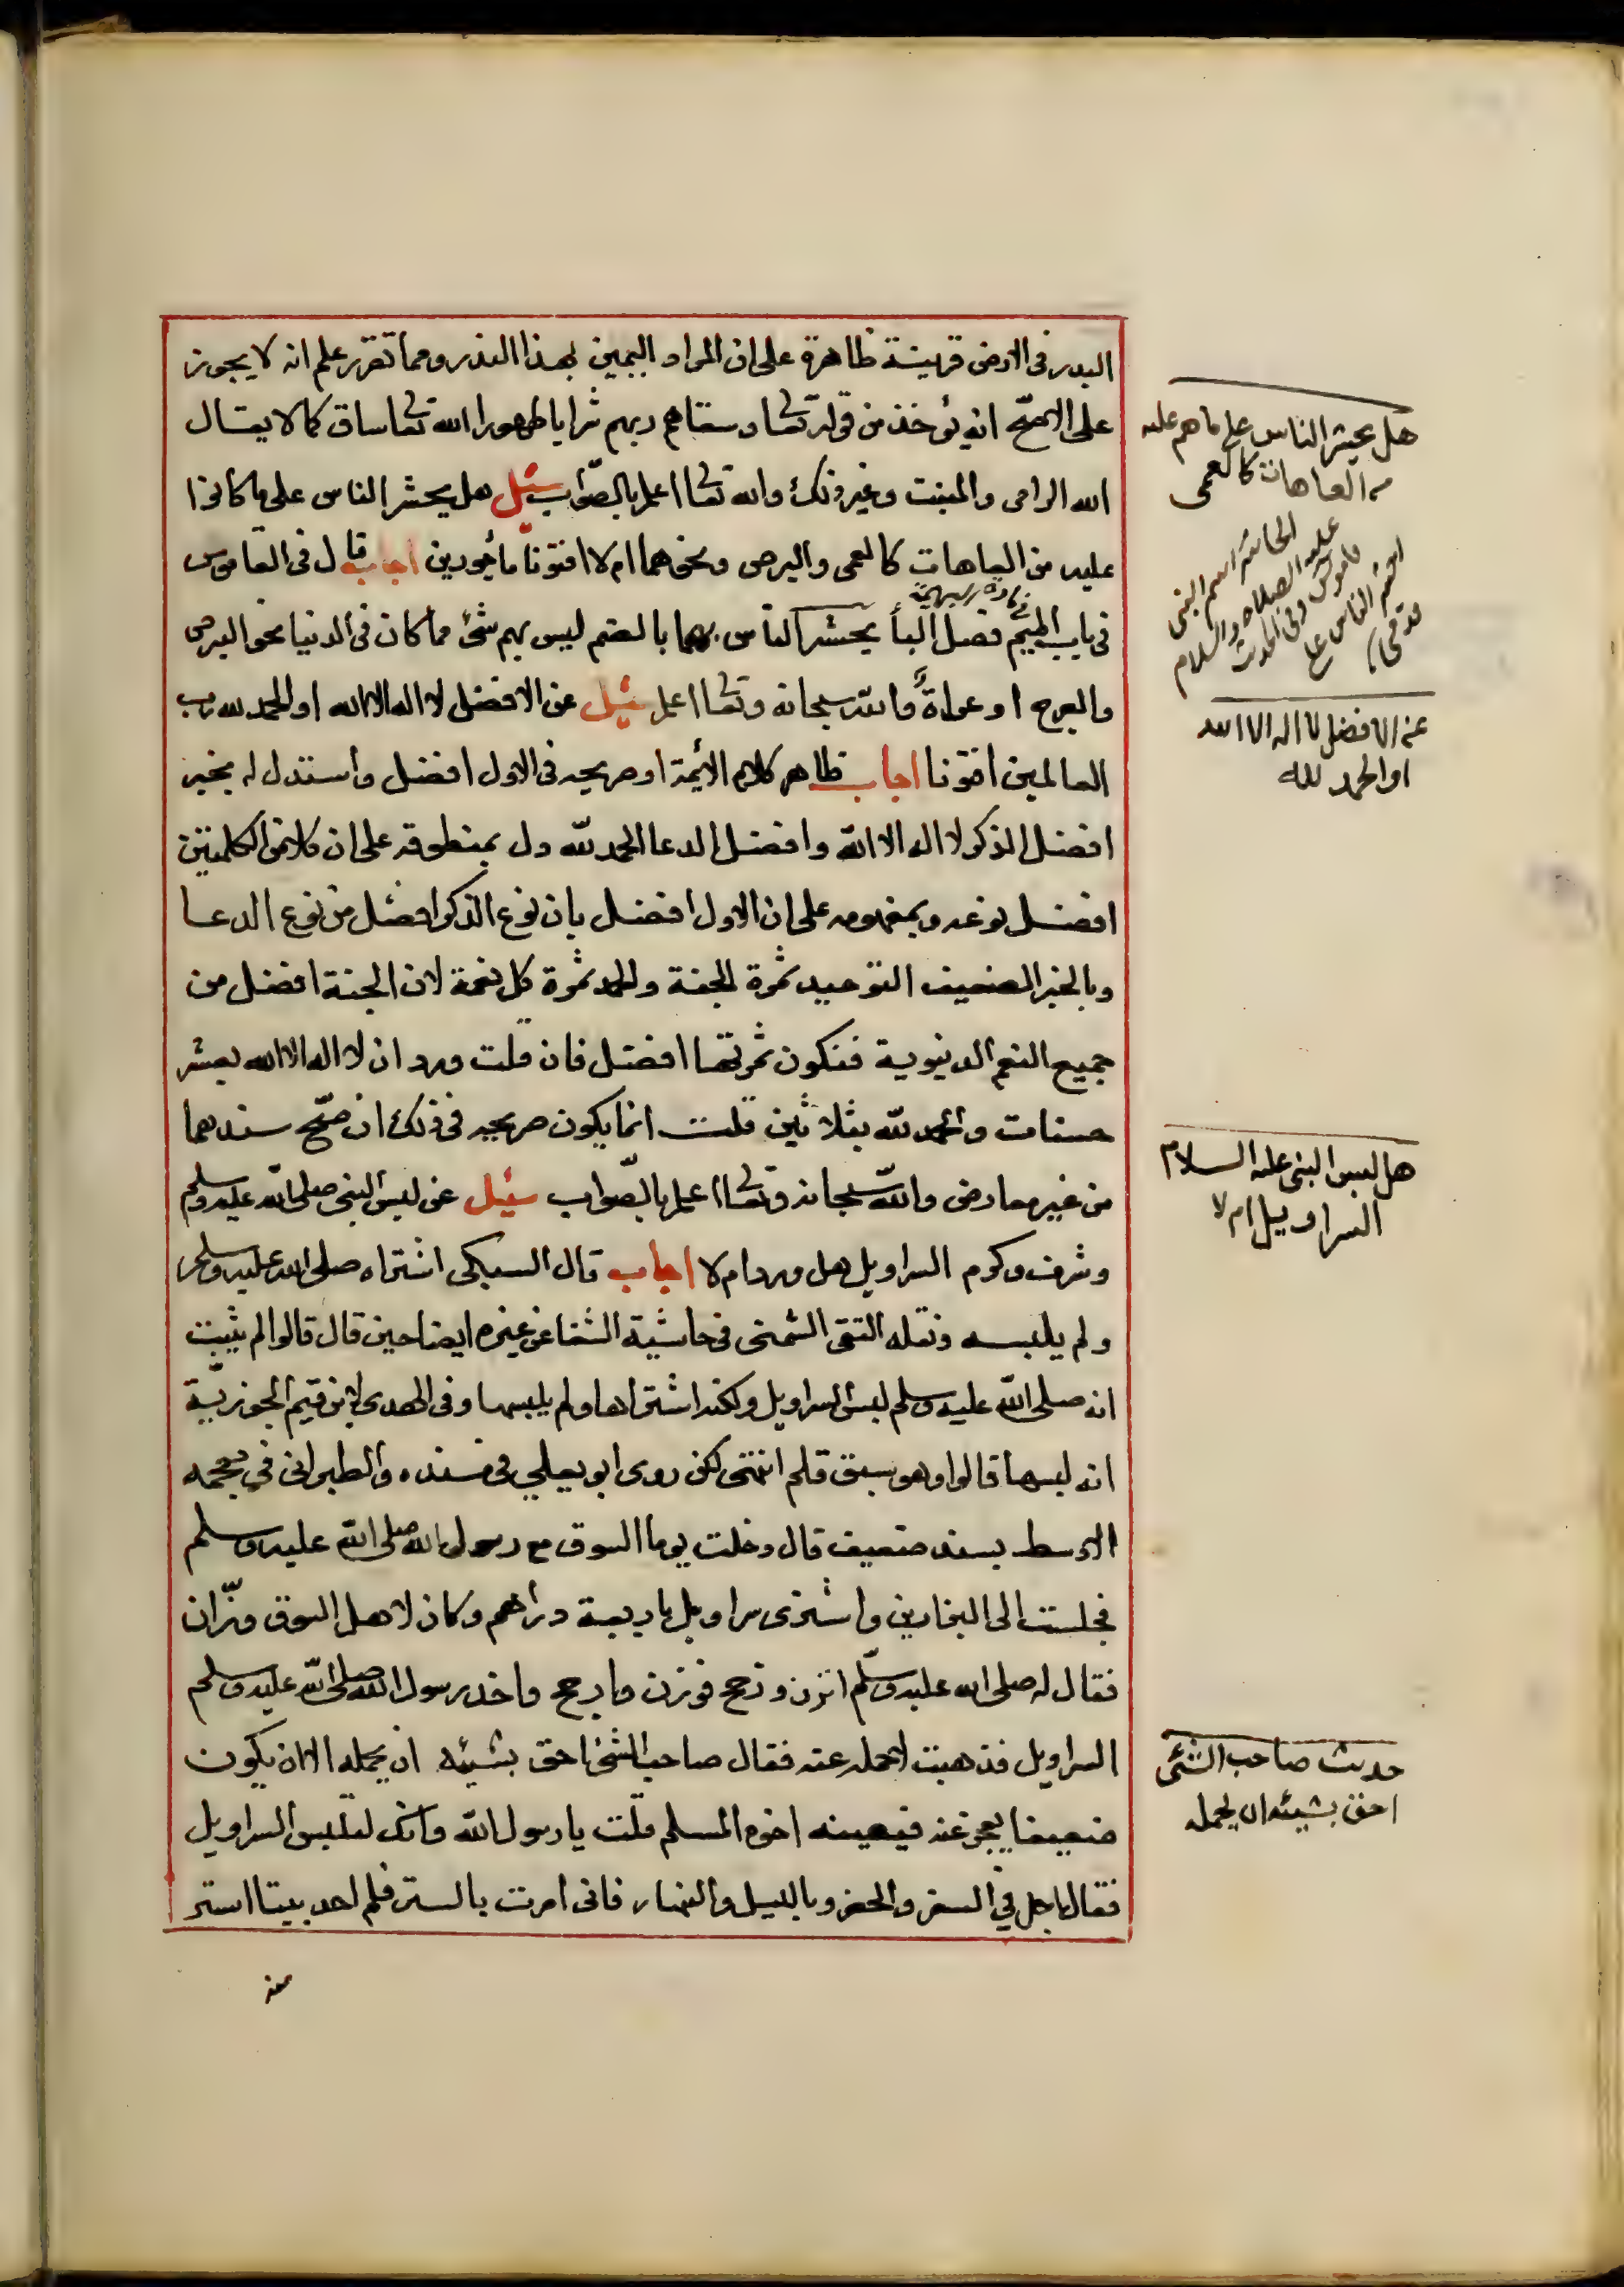 البدر فى الارض قرينة ظاهرة على ان المراد اليمين بهذا النذر ومما تقرر علم انه لا يجوز
على الاصح انه يؤخذ من قوله تعالى وسقاهم ربهم شرابا طهورا الله تعالى ساق كما لا يقال
الله الرامى والمنبت وغير ذلك والله تعالى اعلم بالصواب سئل هل يحشر الناس على ما كانوا
عليه من العاهات كالعمى والبرص ونحوهما ام لا افتونا مأجورين اجاب قال فى القاموس
فى باب الميم فصل البا يحشر الناس بهما بالضم ليس بهم شئ مما كان فى الدنيا نحو البرص
والعرج او عراة والله سبحانه وتعالى اعلم سئل عن الافضل لا اله الا الله او الحمد لله رب
العالمين افتونا اجاب ظاهر كلام الأئمة او صريحه فى الاول افضل واستدل له بخبر
افضل الذكر لا اله الا الله وافضل الدعا الحمد لله دل بمنطوقه على ان كلا من الكلمتين
افضل نوعه وبمفهومه على ان الاول افضل بان نوع الذكر افضل من نوع الدعا
وبالخبر الضعيف التوحيد ثمرة الجنة والحمد ثمرة كل نعمة لان الجنة افضل من
جميع النعم الدنيوية فتكون ثمرتها افضل فان قلت ورد ان لا اله الا الله بعشر
حسنات والحمد لله بثلاثين قلت انما يكون صريحه فى ذلك ان صح سندهما
من غير معارض والله سبحانه وتعالى اعلم بالصواب سئل عن لبس النبى صلى الله عليه وسلم
وشرف وكرم السراويل هل ورد ام لا اجاب قال السبكى اشتراه صلى الله عليه وسلم
ولم يلبسه ونقله التقى الشمنى فى حاشية الشفا عن غيره ايضا حين قال قالوا لم يثبت
انه صلى الله عليه وسلم لبس السراويل ولكنه اشتراها ولم يلبسها وفى الهدى لابن قيم الجوزية
انه لبسها قالوا وهو سبق قلم انتهى لكن روى ابو يعلى فى مسنده والطبرانى فى معجمه
الاوسط بسند ضعيف قال دخلت يوما السوق مع رسول الله صلى الله عليه وسلم
فجلست الى البزازين واشترى سراويل باربعة دراهم وكان لاهل السوق وزّان
فقال له صلى الله عليه وسلم اتزن وزجح فوزن وارجح واخذ رسول الله صلى الله عليه وسلم
السراويل فذهبت لاحمله عنه فقال صاحب الشئ احق بشيئه ان يحمله الا ان يكون
ضعيفا يعجز عنه فيعينه اخوه المسلم قلت يا رسول الله وانك لتلبس السراويل
فقال اجل فى السفر والحضر وبالليل والنهار فانى امرت بالستر فلم اجد بيتا استر
منه
هل يحشر الناس على ما هم عليه
من العاهات كالعمى
الحاشر اسم النبى
عليه الصلاه والسلام
قاموس وفى الحدث
احشر الناس على
قدمى
عن الافضل لا اله الا الله
او الحمد لله
هل لبس النبى عليه السلام
السراويل ام لا
حديث صاحب الشئ
احق بشيئه ان يحمله